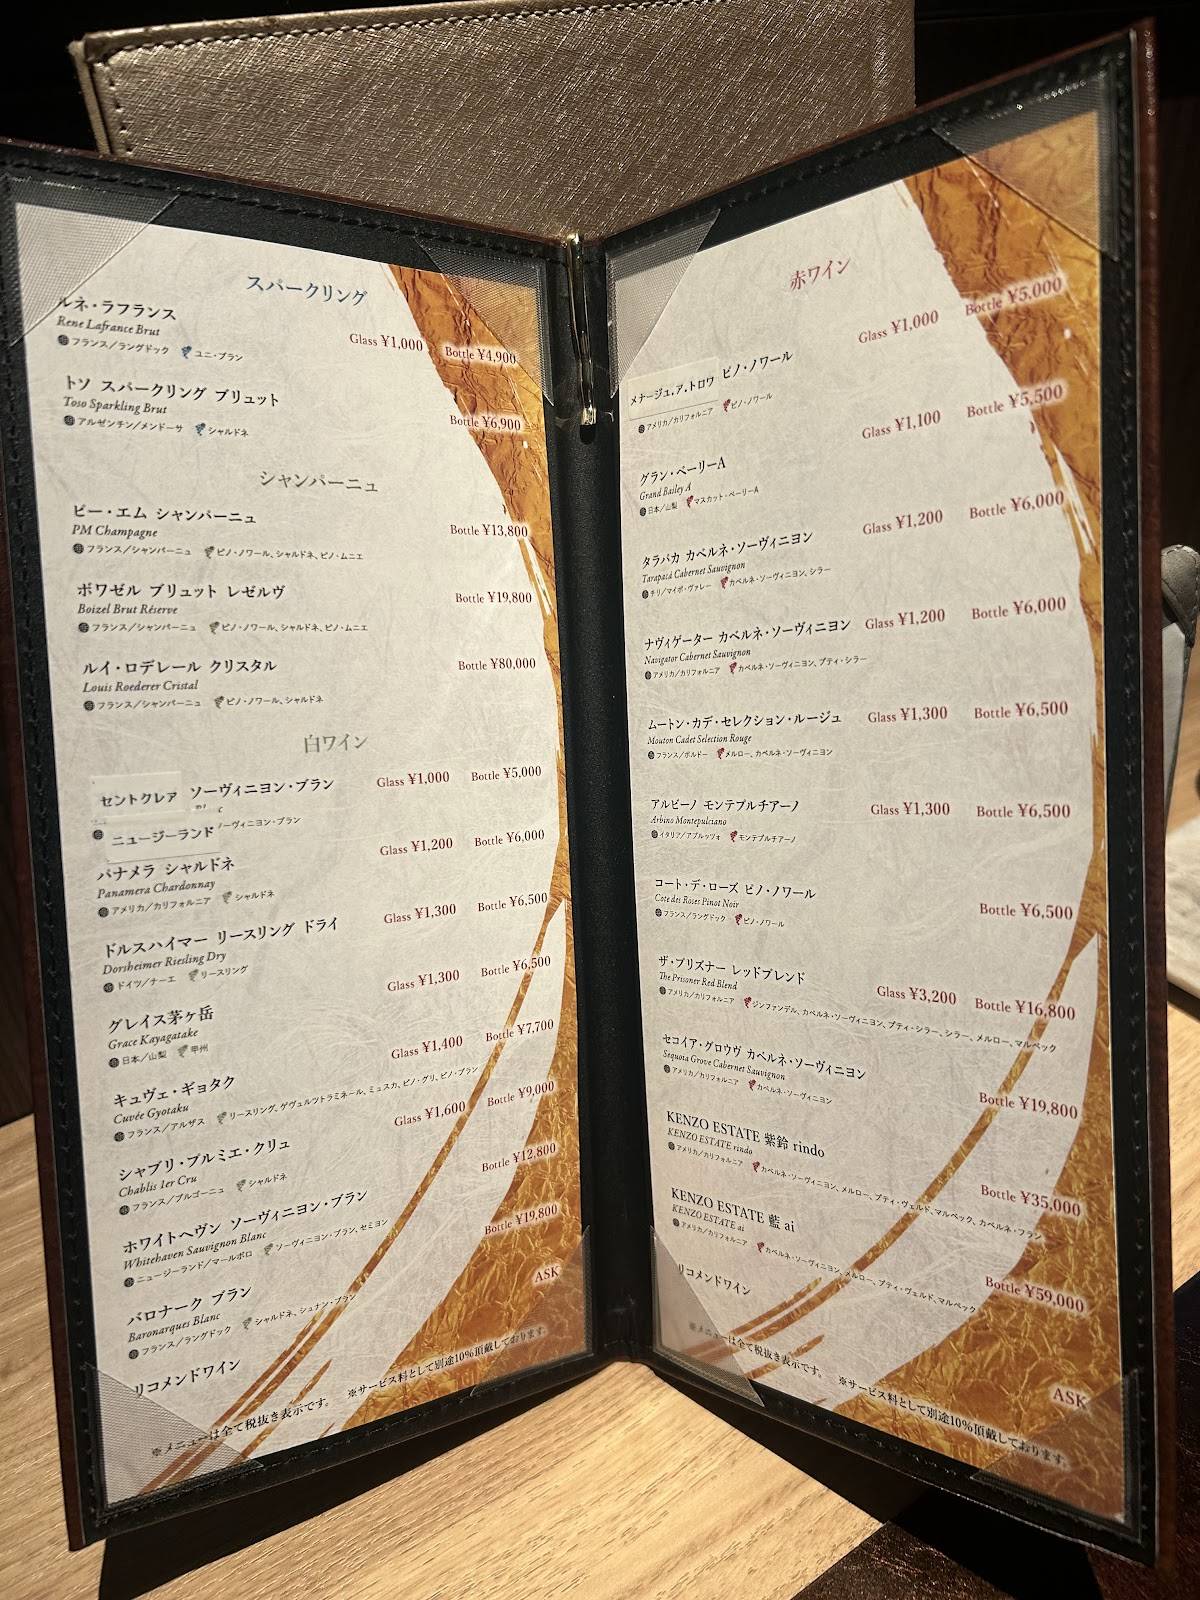 スパークリング
ルネ・ラフランス
Rene Lafrance Brut
フランス／ラングドック ユニ・ブラン
Glass ¥1,000 Bottle ¥4,900
トソ スパークリング ブリュット
Toso Sparkling Brut
アルゼンチン／メンドーサ シャルドネ
Bottle ¥6,900
シャンパーニュ
ピー・エム シャンパーニュ
PM Champagne
フランス／シャンパーニュ ピノ・ノワール、シャルドネ、ピノ・ムニエ
Bottle ¥13,800
ボワゼル ブリュット レゼルヴ
Boizel Brut Réserve
フランス／シャンパーニュ ピノ・ノワール、シャルドネ、ピノ・ムニエ
Bottle ¥19,800
ルイ・ロデレール クリスタル
Louis Roederer Cristal
フランス／シャンパーニュ ピノ・ノワール、シャルドネ
Bottle ¥80,000
白ワイン
セントクレア ソーヴィニヨン・ブラン
ニュージーランド ーヴィニヨン・ブラン
Glass ¥1,000 Bottle ¥5,000
パナメラ シャルドネ
Panamera Chardonnay
アメリカ／カリフォルニア シャルドネ
Glass ¥1,200 Bottle ¥6,000
ドルスハイマー リースリング ドライ
Dorsheimer Riesling Dry
ドイツ／ナーエ リースリング
Glass ¥1,300 Bottle ¥6,500
グレイス茅ヶ岳
Grace Kayagatake
日本／山梨 甲州
Glass ¥1,300 Bottle ¥6,500
キュヴェ・ギョタク
Cuvée Gyotaku
フランス／アルザス リースリング、ゲヴェルツトラミネール、ミュスカ、ピノ・グリ、ピノ・ブラン
Glass ¥1,400 Bottle ¥7,700
シャブリ・プルミエ・クリュ
Chablis 1er Cru
フランス／ブルゴーニュ シャルドネ
Glass ¥1,600 Bottle ¥9,000
ホワイトヘヴン ソーヴィニヨン・ブラン
Whitehaven Sauvignon Blanc
ニュージーランド／マールボロ ソーヴィニヨン・ブラン、セミヨン
Bottle ¥12,800
バロナーク ブラン
Baronarques Blanc
フランス／ラングドック シャルドネ、シュナン・ブラン
Bottle ¥19,800
リコメンドワイン
ASK
※メニューは全て税抜き表示です。 ※サービス料として別途10%頂戴しております。
赤ワイン
メナージュ.ア.トロワ ピノ・ノワール
アメリカ／カリフォルニア ピノ・ノワール
Glass ¥1,000 Bottle ¥5,000
グラン・ベーリーA
Grand Bailey A
日本／山梨 マスカット・ベーリーA
Glass ¥1,100 Bottle ¥5,500
タラパカ カベルネ・ソーヴィニヨン
Tarapacá Cabernet Sauvignon
チリ／マイポ・ヴァレー カベルネ・ソーヴィニヨン、シラー
Glass ¥1,200 Bottle ¥6,000
ナヴィゲーター カベルネ・ソーヴィニヨン
Navigator Cabernet Sauvignon
アメリカ／カリフォルニア カベルネ・ソーヴィニヨン、プティ・シラー
Glass ¥1,200 Bottle ¥6,000
ムートン・カデ・セレクション・ルージュ
Mouton Cadet Selection Rouge
フランス／ボルドー メルロー、カベルネ・ソーヴィニヨン
Glass ¥1,300 Bottle ¥6,500
アルビーノ モンテプルチアーノ
Arbino Montepulciano
イタリア／アブルッツォ モンテプルチアーノ
Glass ¥1,300 Bottle ¥6,500
コート・デ・ローズ ピノ・ノワール
Cote des Roses Pinot Noir
フランス／ラングドック ピノ・ノワール
Bottle ¥6,500
ザ・プリズナー レッドブレンド
The Prisoner Red Blend
アメリカ／カリフォルニア ジンファンデル、カベルネ・ソーヴィニヨン、プティ・シラー、シラー、メルロー、マルベック
Glass ¥3,200 Bottle ¥16,800
セコイア・グロウヴ カベルネ・ソーヴィニヨン
Sequoia Grove Cabernet Sauvignon
アメリカ／カリフォルニア カベルネ・ソーヴィニヨン
Bottle ¥19,800
KENZO ESTATE 紫鈴 rindo
KENZO ESTATE rindo
アメリカ／カリフォルニア カベルネ・ソーヴィニヨン、メルロー、プティ・ヴェルド、マルベック、カベルネ・フラン
Bottle ¥35,000
KENZO ESTATE 藍 ai
KENZO ESTATE ai
アメリカ／カリフォルニア カベルネ・ソーヴィニヨン、メルロー、プティ・ヴェルド、マルベック
Bottle ¥59,000
リコメンドワイン
ASK
※メニューは全て税抜き表示です。 ※サービス料として別途10%頂戴しております。